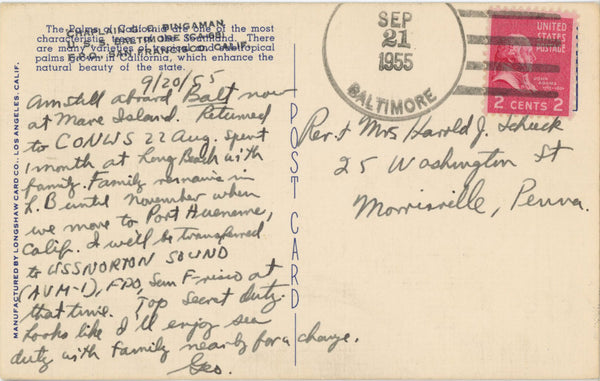 The Palms of California are one of the most
characteristic trees of the Southland. There
are many varieties of tropical and semitropical
palms grown in California, which enhance the
natural beauty of the state.
CHAPLAIN G. C. BINGAMAN
U. S. S. BALTIMORE (CA-68)
F.P.O. SAN FRANCISCO, CALIF.
9/20/55
Am still aboard Balt now
at Mare Island. Returned
to CONUS 22 Aug. Spent
1 month at Long Beach with
family. Family remains in
L. B until November when
we move to Port Hueneme,
Calif. I will be transferred
to USS NORTON SOUND
(AVM-1), FPO, San Frisco at
that time. Top Secret duty.
Looks like I'll enjoy sea
duty with family nearby for a change.
Geo.
MANUFACTURED BY LONGSHAW CARD CO., LOS ANGELES, CALIF.
POST CARD
SEP
21
1955
BALTIMORE
UNITED
STATES
POSTAGE
JOHN
ADAMS
2 CENTS 2
Rev. & Mrs Harold J. Schuck
25 Washington St
Morrisville, Penna.